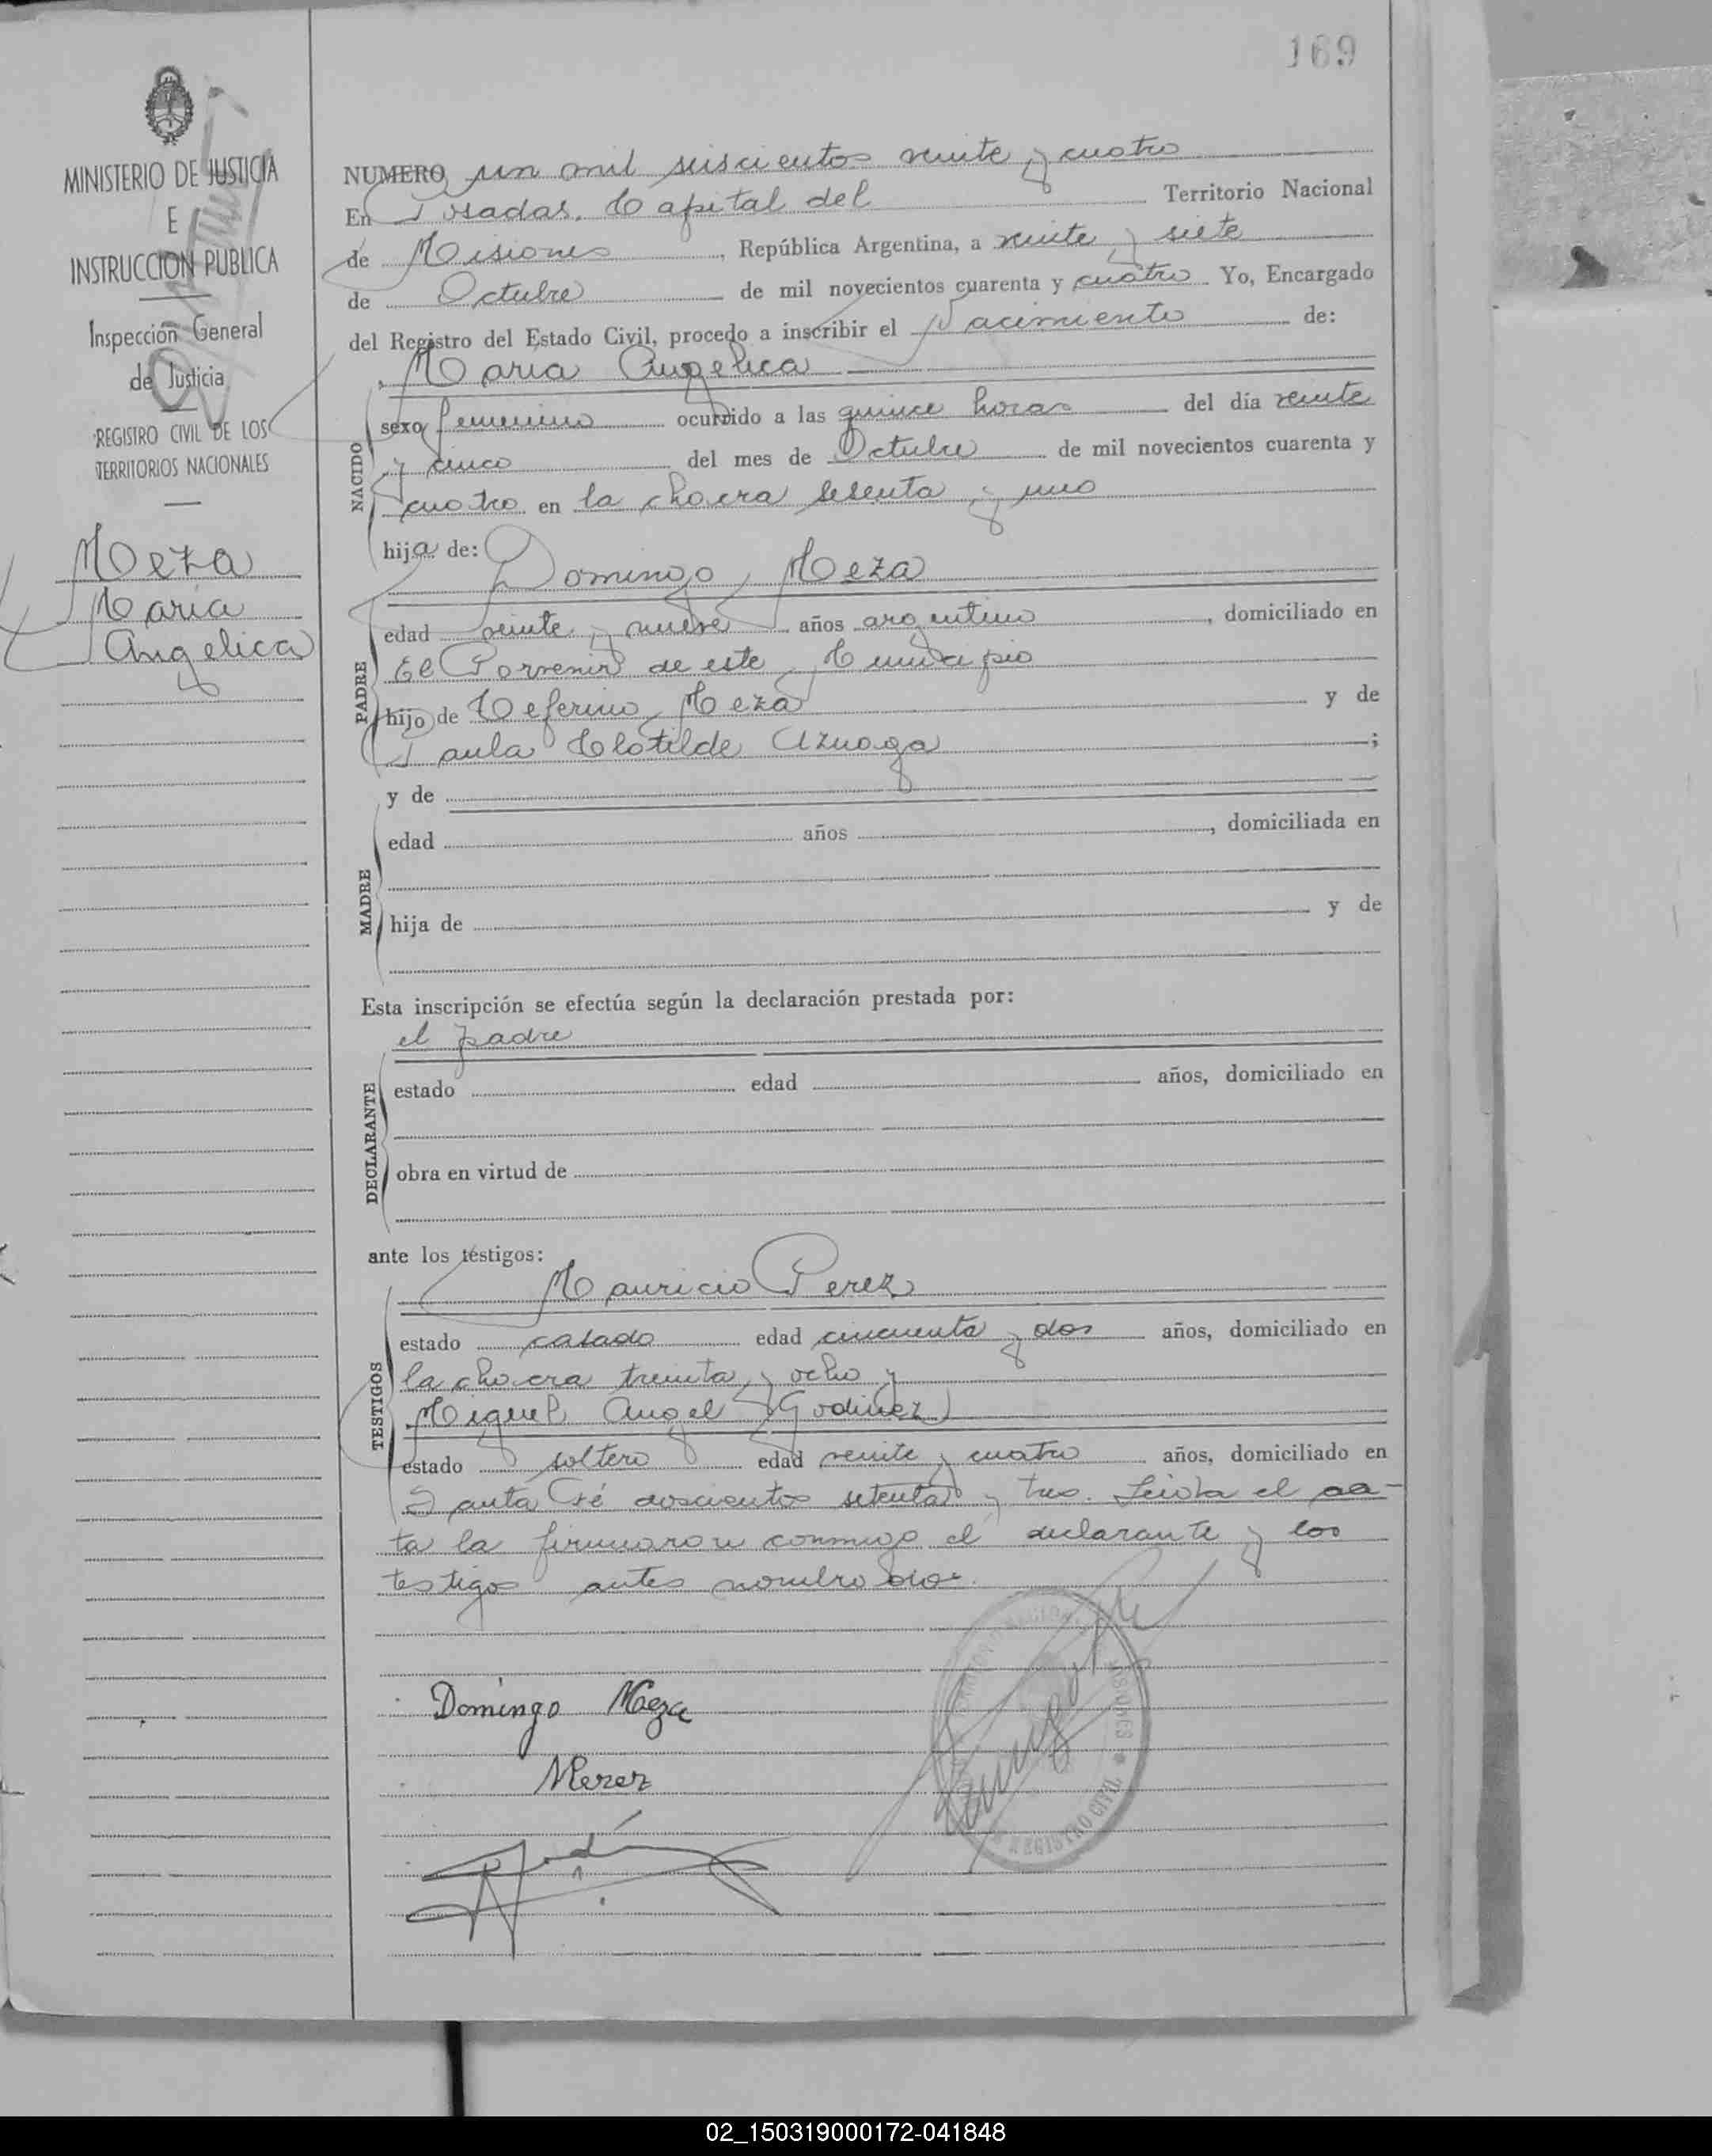 169
MINISTERIO DE JUSTICIA
E
INSTRUCCION PUBLICA
Inspección General
de Justicia
REGISTRO CIVIL DE LOS
TERRITORIOS NACIONALES
Meza
Maria
Angelica
NUMERO un mil seiscientos veinte y cuatro
En Posadas, Capital del Territorio Nacional
de Misiones, República Argentina, a veinte y siete
de Octubre de mil novecientos cuarenta y cuatro. Yo, Encargado
del Registro del Estado Civil, procedo a inscribir el Nacimiento de:
Maria Angelica
NACIDO
sexo femenino ocurrido a las quince horas del día veinte
y cinco del mes de Octubre de mil novecientos cuarenta y
cuatro en la chacra sesenta y uno
hija de:
Domingo Meza
PADRE
edad veinte y nueve años argentino, domiciliado en
El Porvenir de este Municipio
hijo de Ceferino Meza y de
Paula Clotilde Azuaga;
y de
MADRE
edad años, domiciliada en
hija de y de
Esta inscripción se efectúa según la declaración prestada por:
el padre
DECLARANTE
estado edad años, domiciliado en
obra en virtud de
ante los testigos:
Mauricio Perez
TESTIGOS
estado casado edad cincuenta y dos años, domiciliado en
la chacra treinta y ocho y
Miguel Angel Godinez
estado soltero edad veinte y cuatro años, domiciliado en
Santa Fé doscientos setenta y tres. Leida el ac-
ta la firmaron conmigo el declarante y los
testigos antes nombrados.
Domingo Meza
MPerez
REGISTRO CIVIL
MISIONES
02_150319000172-041848